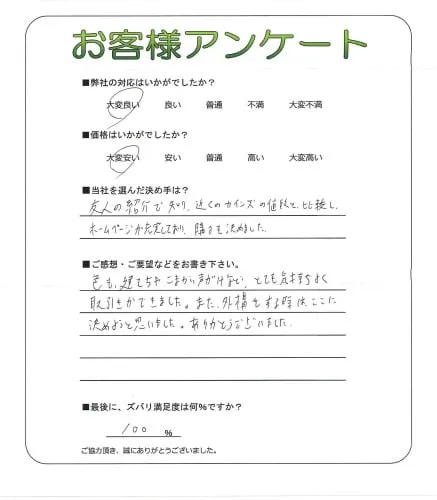 お客様アンケート
■弊社の対応はいかがでしたか？
大変良い 良い 普通 不満 大変不満
■価格はいかがでしたか？
大変安い 安い 普通 高い 大変高い
■当社を選んだ決め手は？
友人の紹介で知り、近くのカインズの値段と比較し、
ホームページが充実しており、購入を決めました。
■ご感想・ご要望などをお書き下さい。
色も、こまかい がけない、とても気持ちよく
取引きができました。また、外構をする時は、ここに
決めようと思いました。ありがとうございました。
■最後に、ズバリ満足度は何%ですか？
100 %
ご協力頂き、誠にありがとうございました。